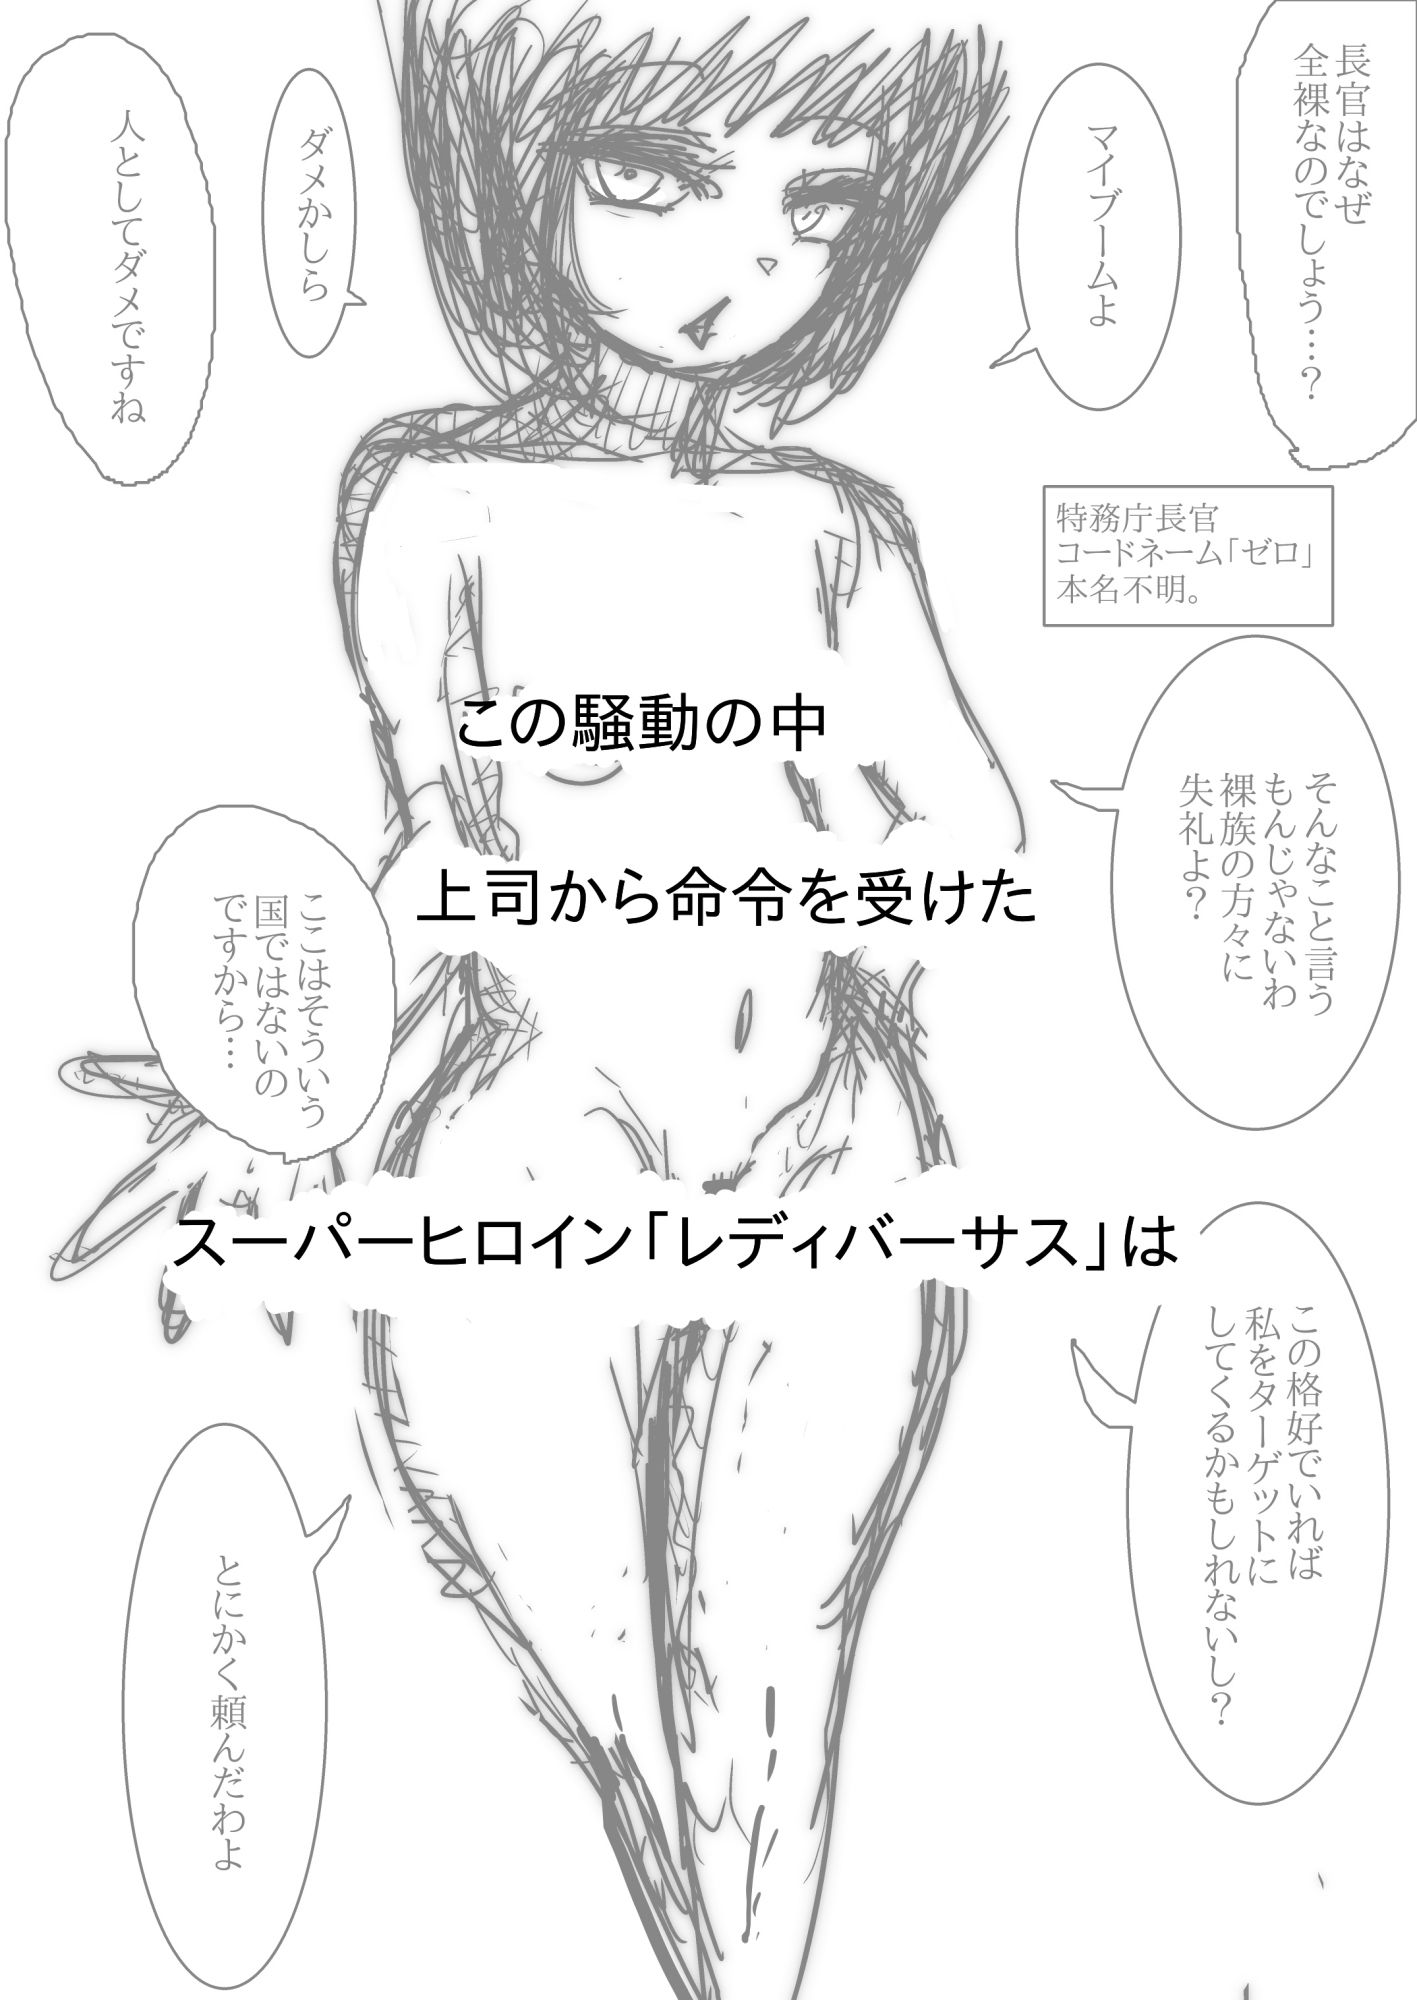 長官はなぜ
全裸なのでしょう…?
マイブームよ
ダメかしら
人としてダメですね
特務庁長官
コードネーム「ゼロ」
本名不明。
この騒動の中
そんなこと言う
もんじゃないわ
裸族の方々に
失礼よ?
上司から命令を受けた
ここはそういう
国ではないの
ですから…
スーパーヒロイン「レディバーサス」は
この格好でいれば
私をターゲットに
してくるかもしれないし?
とにかく頼んだわよ